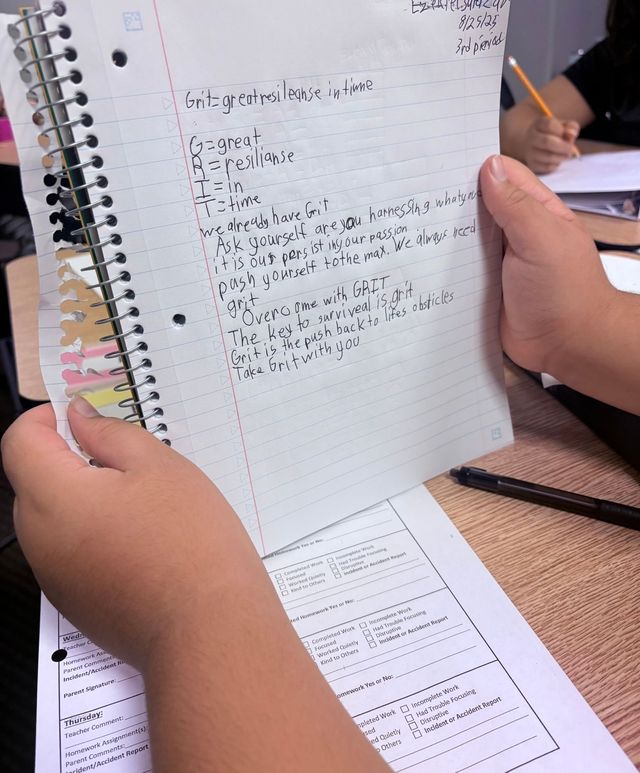 8/25/25
3rd pieriod
Grit= greatresileanse in time
G=great
R= resilianse
I = in
T=time
we already have Grit
Ask yourself are you harnessing
it is our persisting our passion
push yourself to the max. We always need
grit
Overcome with GRIT
The key to surviveal is grit
Grit is the push back to lifes obsticles
Take Grit with you
Homework Yes or No:
Completed Work
Incomplete Work
Focused
Had Trouble Focusing
Worked Quietly
Disruptive
Kind to Others
Incident or Accident Report
Homework Yes or No:
Completed Work
Incomplete Work
Focused
Had Trouble Focusing
Worked Quietly
Disruptive
Kind to Others
Incident or Accident Report
Homework Yes or No:
Incomplete Work
Had Trouble Focusing
Disruptive
Incident or Accident Report
Quietly
Others
Teacher
Homework
Parent Comments
Incident/Accident
Parent Signature:
Thursday:
Teacher Comment:
Homework Assignment(s):
Parent Comments:
Incident/Accident Report